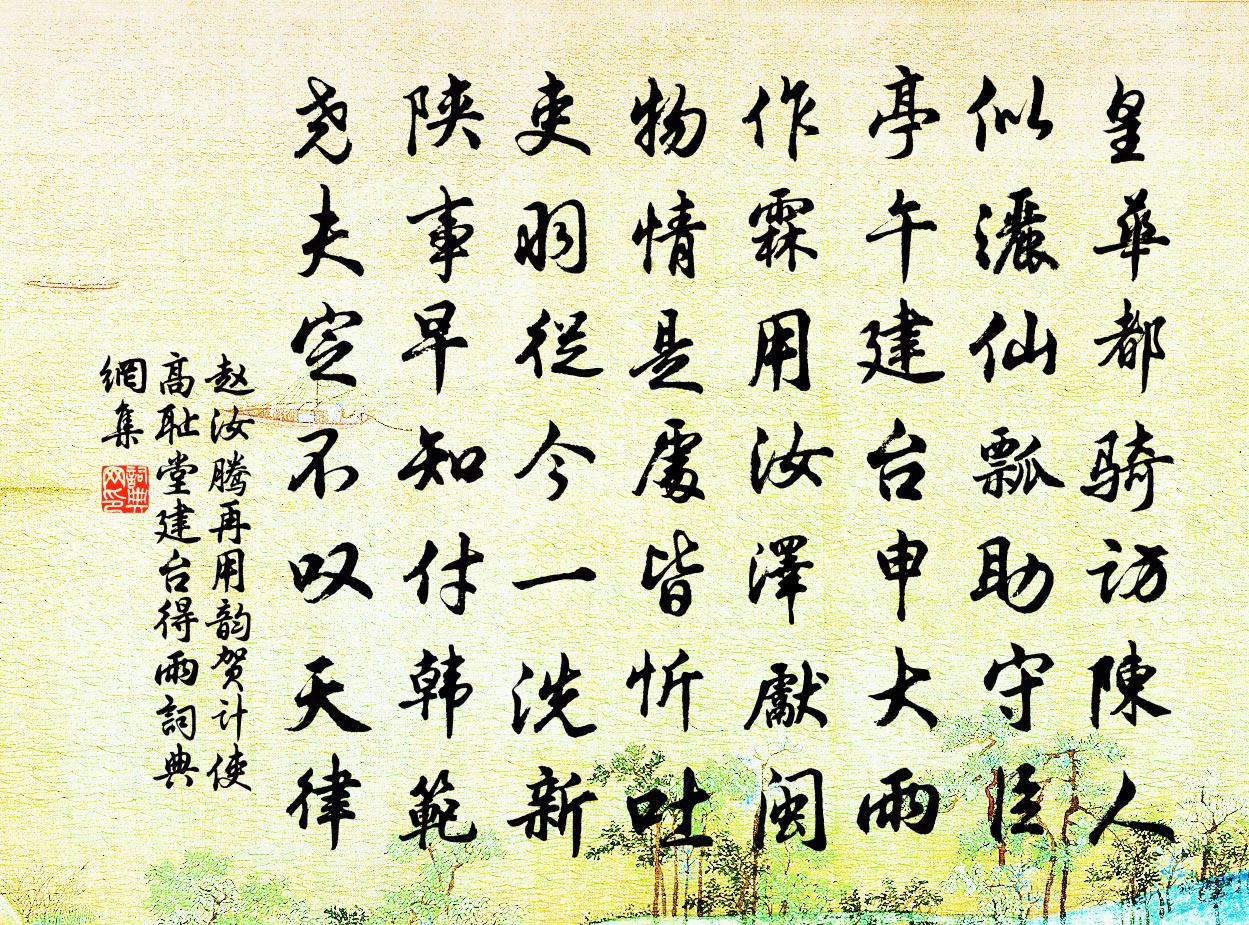 皇華都騎訪陳人
似灑仙瓢助守臣
亭午建台申大雨
作霖用汝澤獻閩
物情是處皆忻吐
吏弱從今一洗新
陝事早知付韩範
尧夫空不叹天律
赵汝腾再用韵贺计使
高耻堂建台得雨詞典
網集